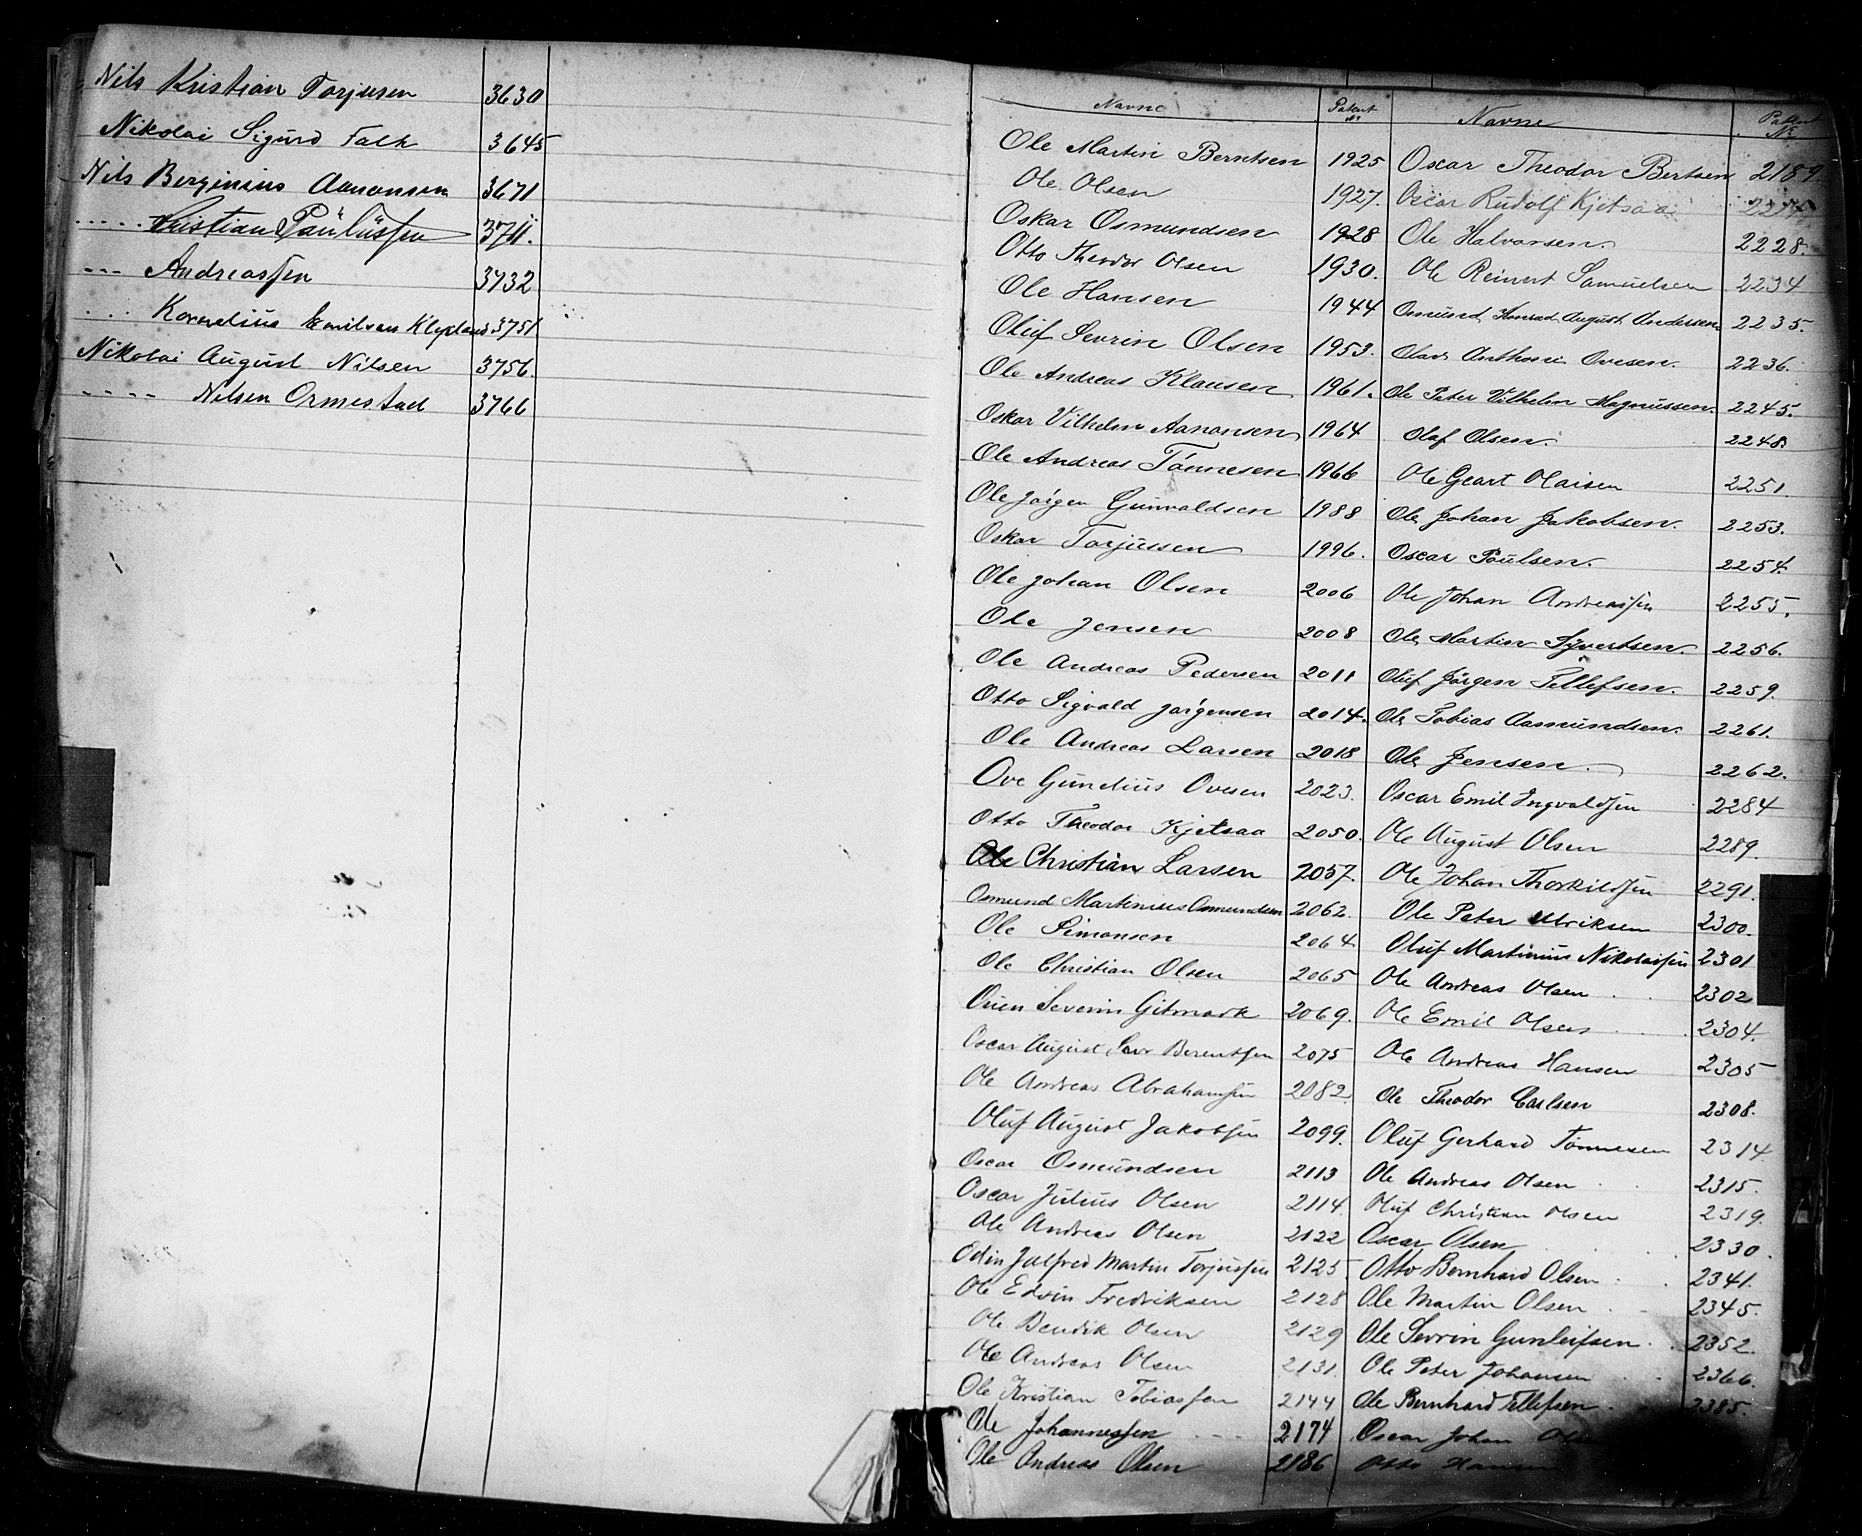 Nils Kristian Torjusen 3630
Nikolai Sigurd Falk 3645
Nils Berginius Aanonsen 3671
..... Kristian Paulussen 3711.
--- Andreassen 3732
... Kornelius Emilsen Klepland 3751
Nikolai August Nilsen 3756.
---- Nilsen Ormestad 3766
Navne Patent Nr Navne Patent Nr
Ole Martin Berntsen 1925 Oscar Theodor Bertsen 2189
Ole Olsen 1927. Oscar Rudolf Kjetsaa
Oskar Osmundsen 1928 Ole Halvorsen. 2228.
Otto Theodor Olsen 1930. Ole Reinert Samuelsen 2234
Ole Hansen 1944 Osmund Konrad August Andersen 2235.
Oluf Sevrin Olsen 1953. Olav Anthoni Ovesen. 2236.
Ole Andreas Klausen 1961. Ole Peter Vilhelm Magnussen. 2245.
Oskar Vilhelm Aanonsen 1964 Olaf Olsen. 2248.
Ole Andreas Tönnesen 1966 Ole Geart Olaisen 2251.
Ole Jörgen Gunvaldsen 1988 Ole Johan Jakobsen. 2253.
Oskar Torjussen 1996. Oscar Paulsen. 2254.
Ole Johan Olsen 2006 Ole Johan Andreassen 2255.
Ole Jensen 2008 Ole Martin Syvertsen. 2256.
Ole Andreas Pedersen 2011 Oluf Jörgen Tellefsen. 2259.
Otto Sigvald Jörgensen 2014. Ole Tobias Aasmundsen. 2261.
Ole Andreas Larsen 2018 Ole Jensen. 2262.
Ove Gundius Ovesen 2023. Oscar Emil Ingvaldsen 2284
Otto Theodor Kjetsaa 2050. Ole August Olsen 2289.
Ole Christian Larsen 2057. Ole Johan Thorkildsen 2291.
Osmund Martinius Osmundsen 2062. Ole Peter Ulriksen 2300.
Ole Simonsen 2064 Oluf Martinius Nikolaisen 2301
Ole Christian Olsen 2065 Ole Andreas Olsen 2302
Ouen Severin Gitmark 2069. Ole Emil Olsen 2304.
Oscar August Berentsen 2075 Ole Andreas Hansen 2305
Ole Andreas Abrahamsen 2082. Ole Theodor Carlsen 2308.
Oluf August Jakobsen 2099. Oluf Gerhard Tönnesen 2314.
Oscar Osmundsen 2113 Ole Andreas Olsen 2315.
Oscar Julius Olsen 2114. Oluf Christian Olsen 2319.
Ole Andreas Olsen 2122 Oscar Olsen 2330.
Odin Jalfred Martin Torjussen 2125. Otto Bernhard Olsen 2341.
Ole Edvin Fredriksen 2128 Ole Martin Olsen 2345.
Ole Bendik Olsen 2129 Ole Sevrin Gunleifsen 2352.
Ole Andreas Olsen 2131 Ole Peter Johansen 2366.
Ole Kristian Tobiassen 2144 Ole Bernhard Tellefsen 2385.
Ole Johannessen ---- 2174 Oscar Johan
Ole Andreas Olsen 2186 Otto Hansen